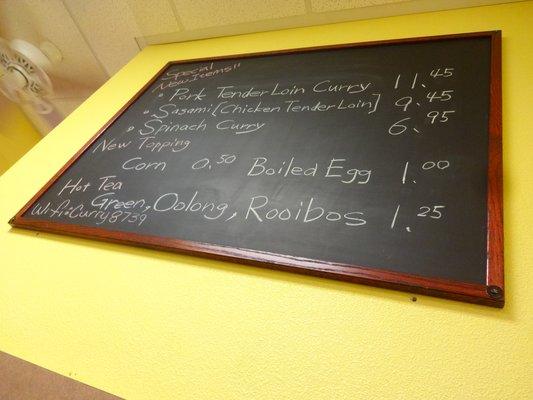 Special
New Items!!
• Pork TenderLoin Curry 11.45
• Sasami [Chicken TenderLoin] 9.45
• Spinach Curry 6.95
New Topping
Corn 0.50 Boiled Egg 1.00
Hot Tea
Green, Oolong, Rooibos 1.25
Wi-fi:Curry8739